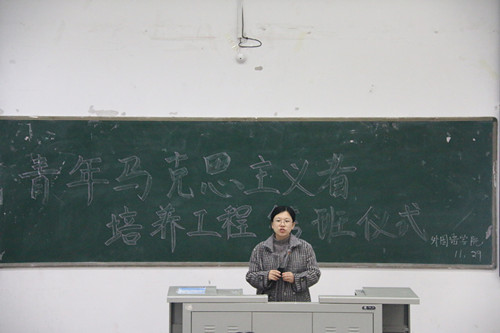 青年马克思主义者
培养工程 班仪式
外国语学院
11.29